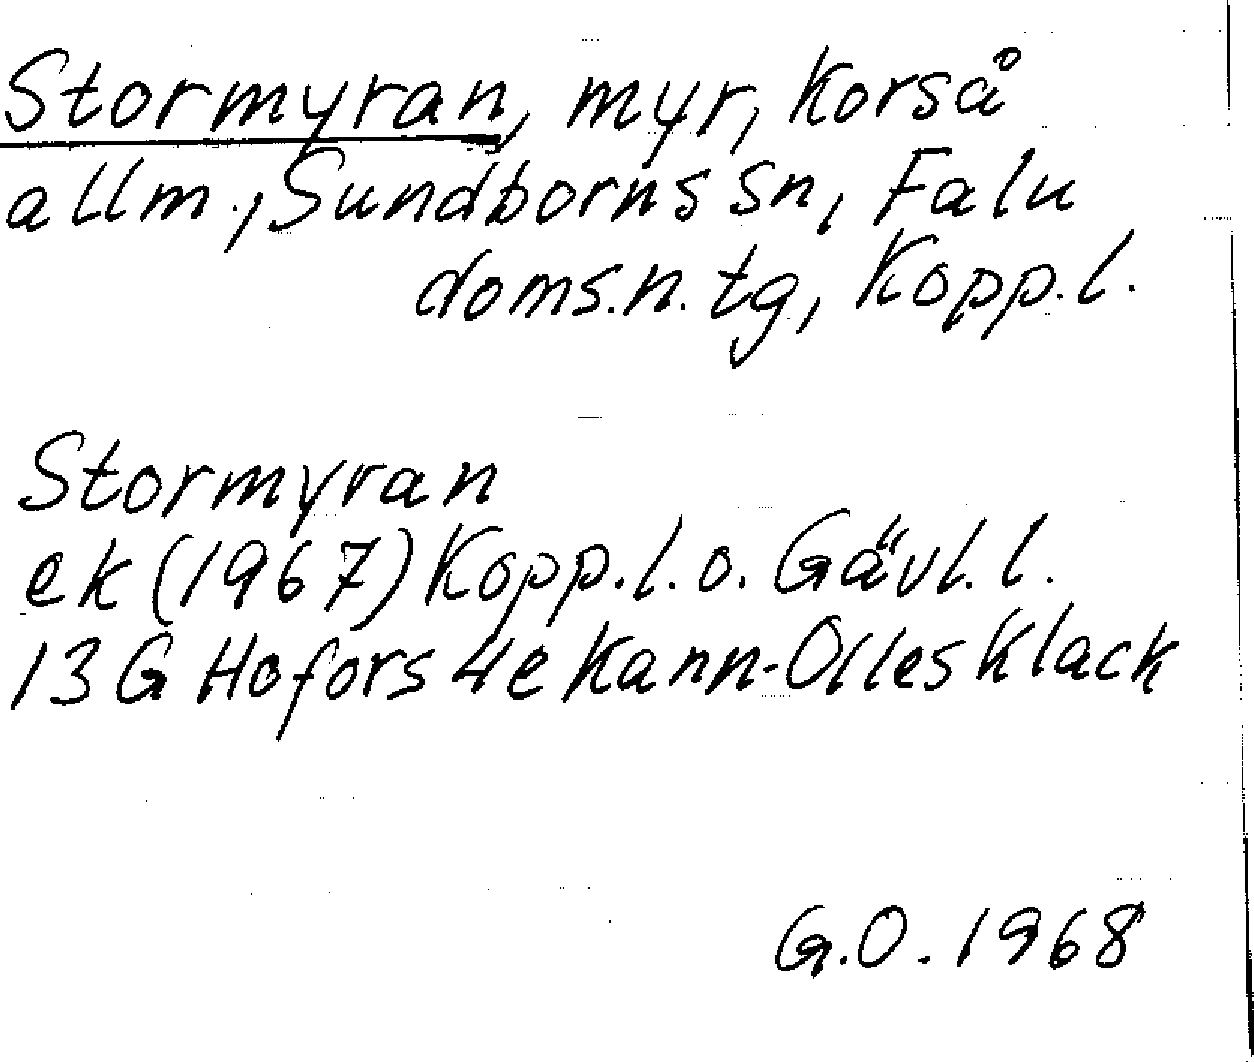 Stormyran, myr, Korså
allm., Sundborns sn, Falu
doms.n. tg, Kopp.l.
Stormyran
ek (1967) Kopp.l. o. Gävl.l.
13G Hofors 4e Kann-Olles Klack
G.O. 1968